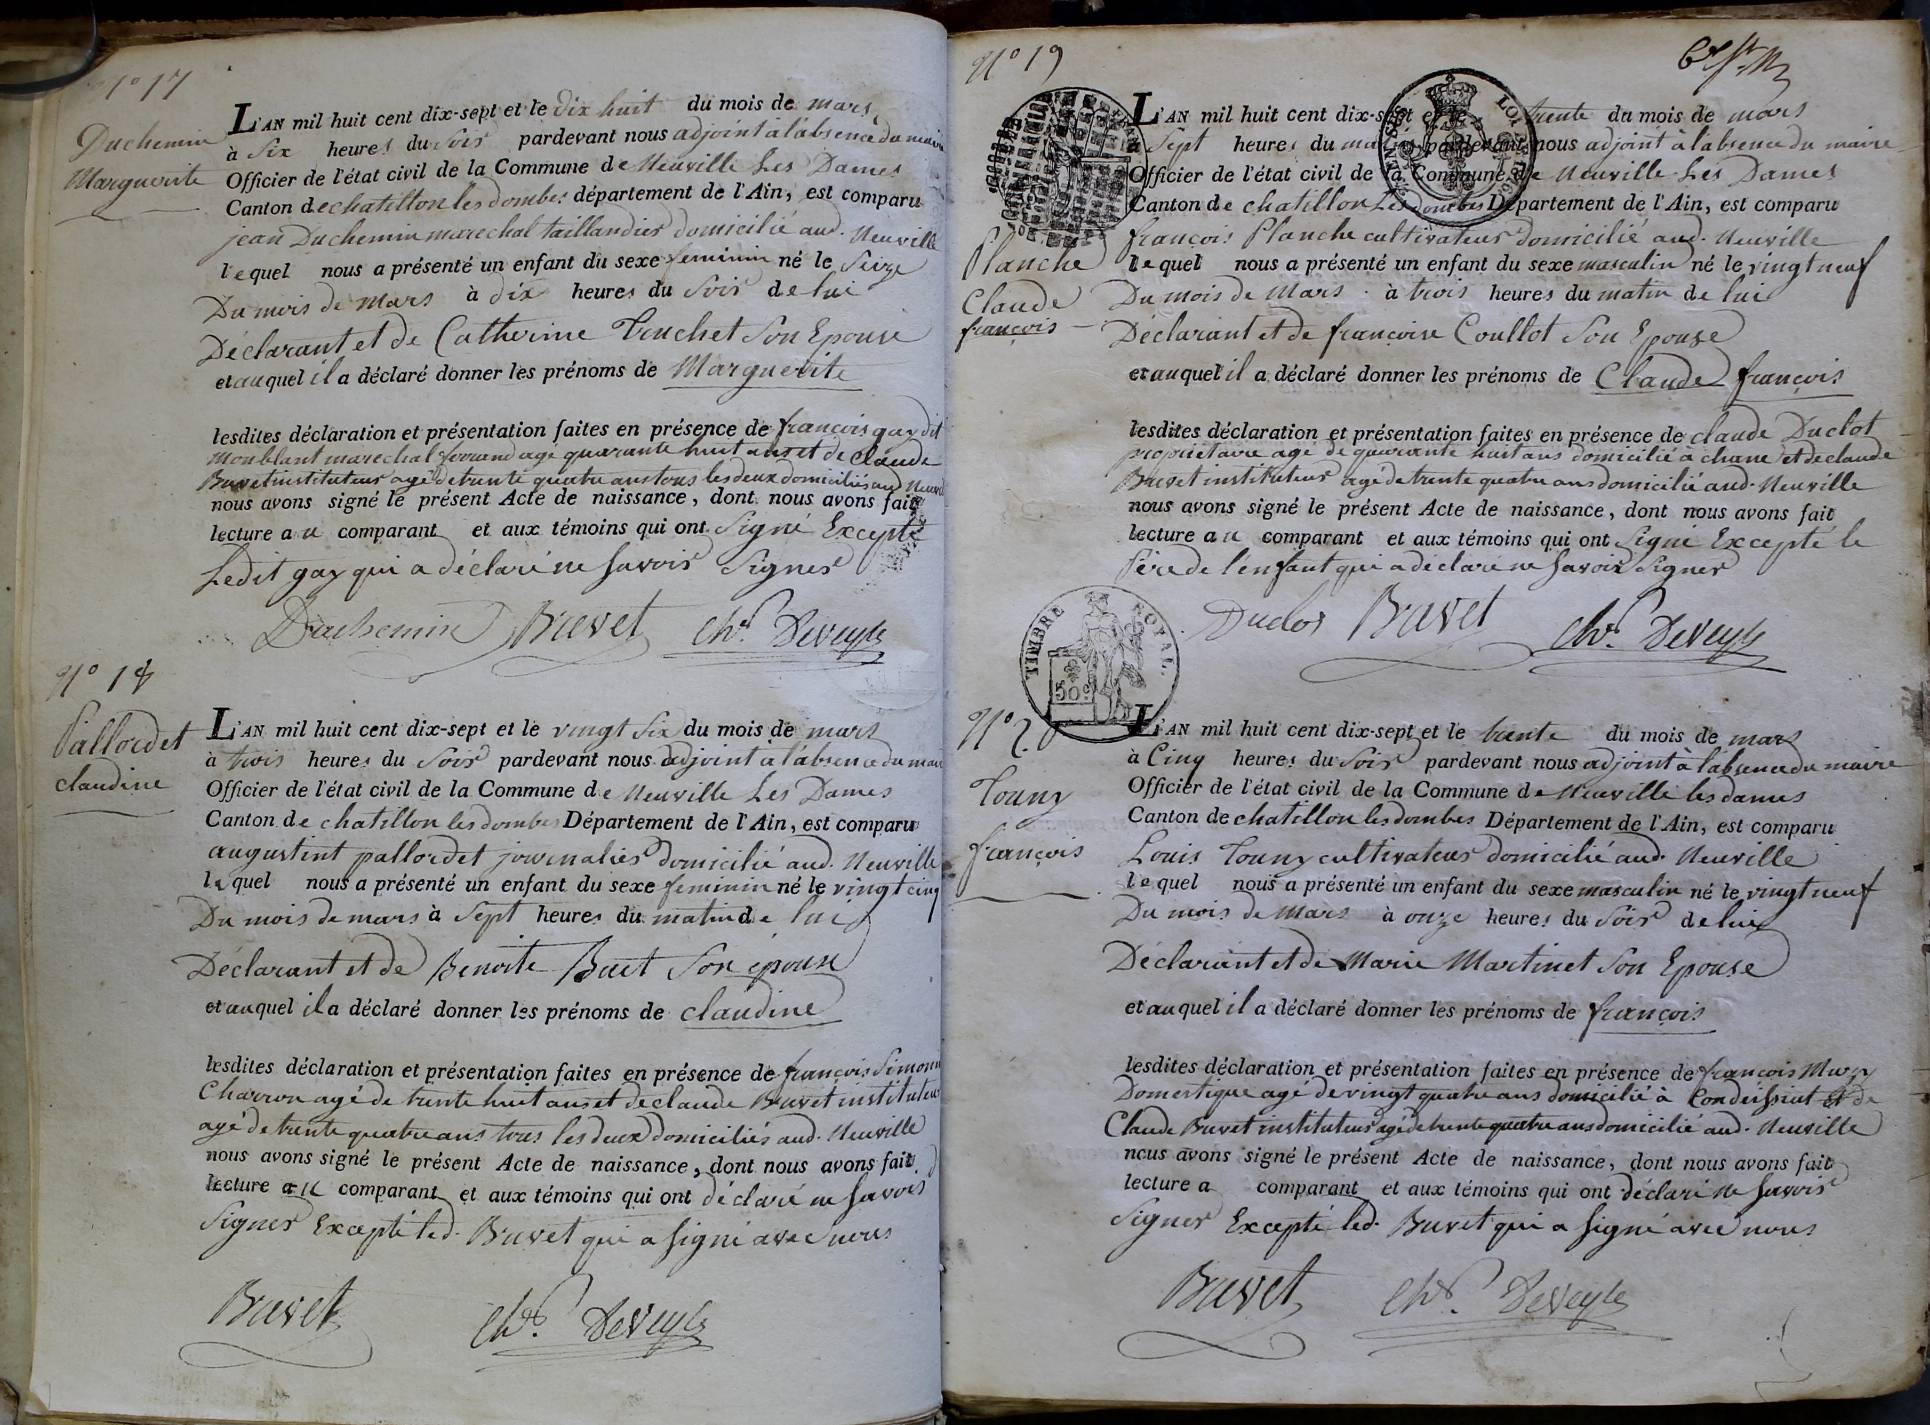 N° 17
Duchemin
Marguerite
L'AN mil huit cent dix-sept et le dix huit du mois de mars,
à Six heures du Soir pardevant nous adjoint à l'absence du maire
Officier de l'état civil de la Commune de Neuville Les Dames
Canton de chatillon les dombes département de l'Ain, est comparu
jean Duchemin marechal taillandier domicilié aud. Neuville
lequel nous a présenté un enfant du sexe feminin né le Seize
Du mois de Mars à dix heures du Soir de lui
Déclarant et de Catherine Truchet Son Epouse
et auquel il a déclaré donner les prénoms de Marguerite
lesdites déclaration et présentation faites en présence de françois gay dit
Monblant marechal ferrand agé quarante huit ans et de Claude
Buvet instituteur agé de trente quatre ans tous les deux domiciliés aud Neuville
nous avons signé le présent Acte de naissance, dont nous avons fait
lecture au comparant et aux témoins qui ont Signé Excepté
Ledit gay qui a déclaré ne Savoir Signer
Duchemin Buvet chr. Deveyle
N° 18
Pallordet
claudine
L'AN mil huit cent dix-sept et le vingt Six du mois de mars
à trois heures du Soir pardevant nous adjoint à l'absence du maire
Officier de l'état civil de la Commune de Neuville Les Dames
Canton de chatillon les dombes Département de l'Ain, est comparu
augustint pallordet journalier domicilié aud. Neuville
lequel nous a présenté un enfant du sexe feminin né le vingt cinq
Du mois de mars à Sept heures du matin de lui
Déclarant et de Benoite Buet Son épouse
et auquel il a déclaré donner les prénoms de claudine
lesdites déclaration et présentation faites en présence de françois Simonin
Charron agé de trente huit ans et de claude Buvet instituteur
agé de trente quatre ans tous les deux domiciliés aud. Neuville
nous avons signé le présent Acte de naissance, dont nous avons fait
lecture au comparant et aux témoins qui ont déclaré ne Savoir
Signer Excepté led. Buvet qui a signé avec nous
Buvet chr. Deveyle
N° 19
Planche
Claude
françois
L'AN mil huit cent dix-sept et le trente du mois de mars
à Sept heures du matin pardevant nous adjoint à l'absence du maire
Officier de l'état civil de la Commune de Neuville Les Dames
Canton de chatillon Les dombes Département de l'Ain, est comparu
françois Planche cultivateur domicilié aud. Neuville
lequel nous a présenté un enfant du sexe masculin né le vingt neuf
Du mois de Mars à trois heures du matin de lui
Déclarant et de françoise Coullot Son Epouse
et auquel il a déclaré donner les prénoms de Claude françois
lesdites déclaration et présentation faites en présence de claude Duclot
propriétaire agé de quarante huit ans domicilié à chane et de claude
Buvet instituteur agé de trente quatre ans domicilié aud. Neuville
nous avons signé le présent Acte de naissance, dont nous avons fait
lecture au comparant et aux témoins qui ont Signé Excepté le
Père de l'enfant qui a déclaré ne Savoir Signer
Duclos Buvet chr. Deveyle
TIMBRE ROYAL.
50c
N° 20
Touny
françois
L'AN mil huit cent dix-sept et le trente du mois de mars
à Cinq heures du Soir pardevant nous adjoint à l'absence du maire
Officier de l'état civil de la Commune de Neuville les dames
Canton de chatillon les dombes Département de l'Ain, est comparu
Louis Touny cultivateur domicilié aud. Neuville
lequel nous a présenté un enfant du sexe masculin né le vingt neuf
Du mois de Mars à onze heures du Soir de lui
Déclarant et de Marie Martinet Son Epouse
et auquel il a déclaré donner les prénoms de françois
lesdites déclaration et présentation faites en présence de françois Mury
Domestique agé de vingt quatre ans domicilié à Condeissiat et de
Claude Buvet instituteur agé de trente quatre ans domicilié aud. Neuville
nous avons signé le présent Acte de naissance, dont nous avons fait
lecture a comparant et aux témoins qui ont déclaré ne Savoir
Signer Excepté led. Buvet qui a signé avec nous
Buvet chr. Deveyle